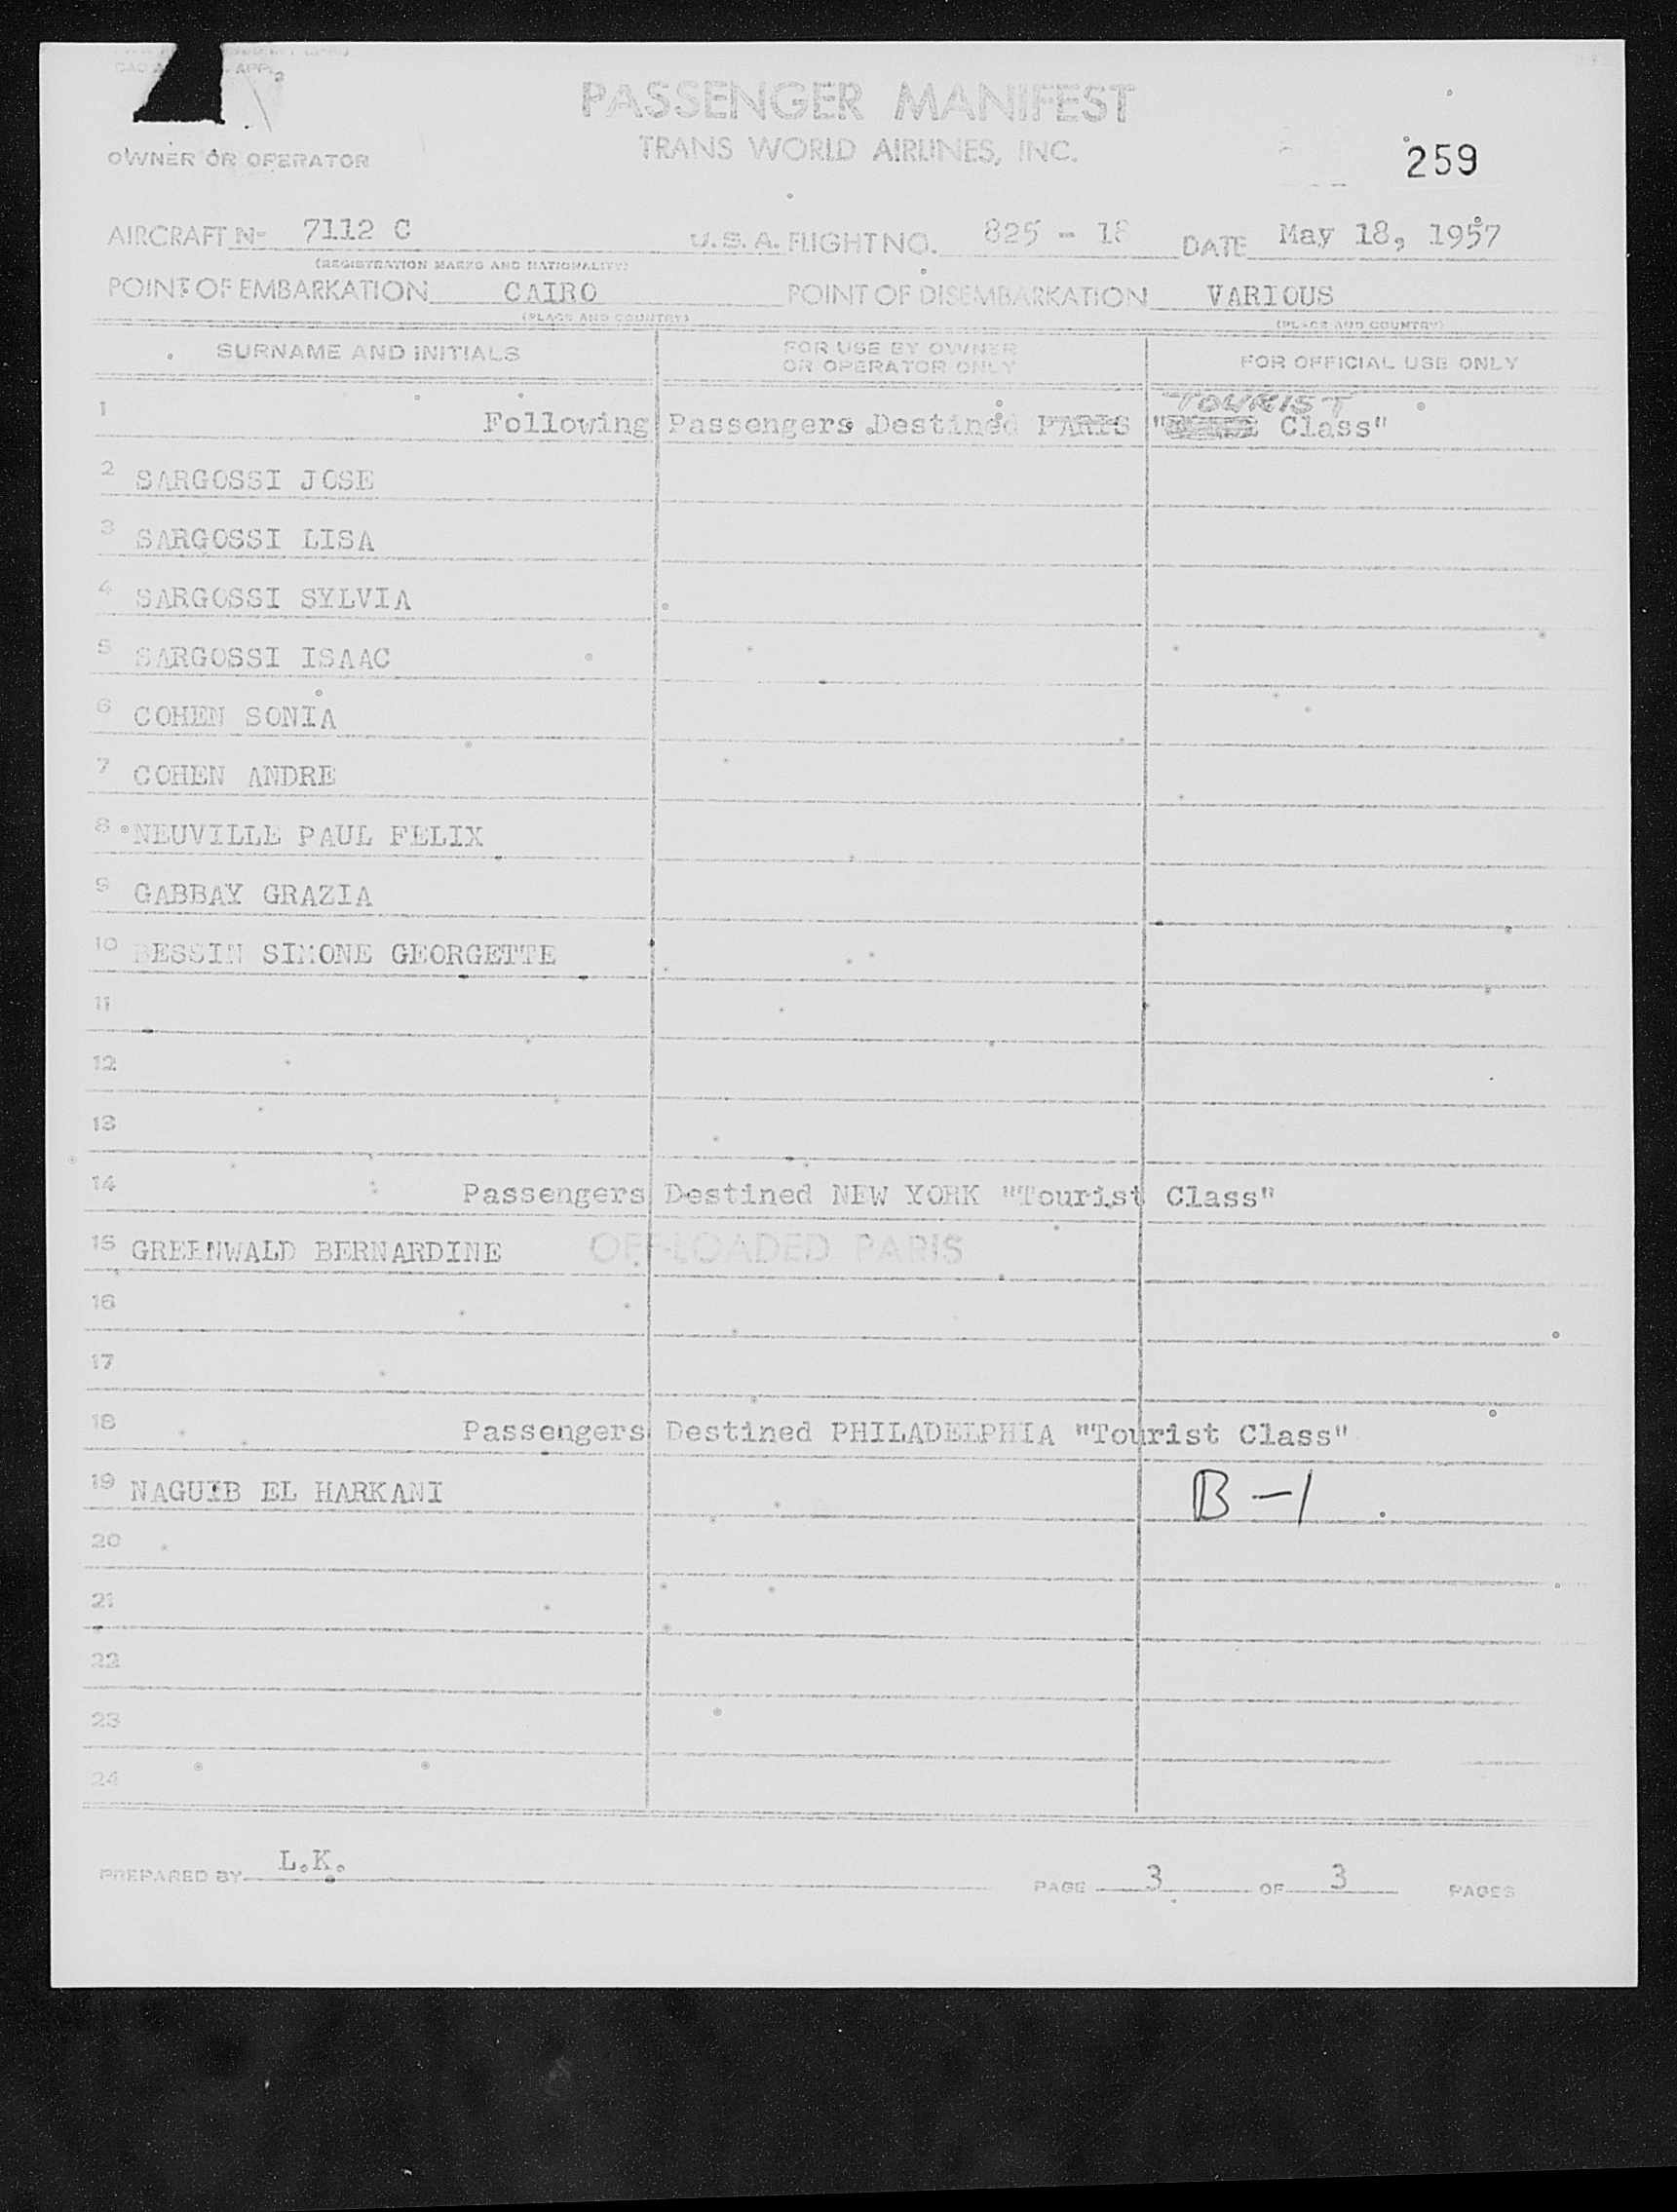 PASSENGER MANIFEST
TRANS WORLD AIRLINES, INC.
OWNER OR OPERATOR
259
AIRCRAFT No 7112 C U.S.A. FLIGHT NO. 825 - 18 DATE May 18, 1957
(REGISTRATION MARKS AND NATIONALITY)
POINT OF EMBARKATION CAIRO POINT OF DISEMBARKATION VARIOUS
(PLACE AND COUNTRY) (PLACE AND COUNTRY)
SURNAME AND INITIALS FOR USE BY OWNER OR OPERATOR ONLY FOR OFFICIAL USE ONLY
TOURIST
1 Following Passengers Destined PARIS " Class"
2 SARGOSSI JOSE
3 SARGOSSI LISA
4 SARGOSSI SYLVIA
5 SARGOSSI ISAAC
6 COHEN SONIA
7 COHEN ANDRE
8 NEUVILLE PAUL FELIX
9 GABBAY GRAZIA
10 BESSIN SIMONE GEORGETTE
11
12
13
14 Passengers Destined NEW YORK "Tourist Class"
15 GREENWALD BERNARDINE OFF-LOADED PARIS
16
17
18 Passengers Destined PHILADELPHIA "Tourist Class"
19 NAGUIB EL HARKANI B-1
20
21
22
23
24
PREPARED BY L.K. PAGE 3 OF 3 PAGES